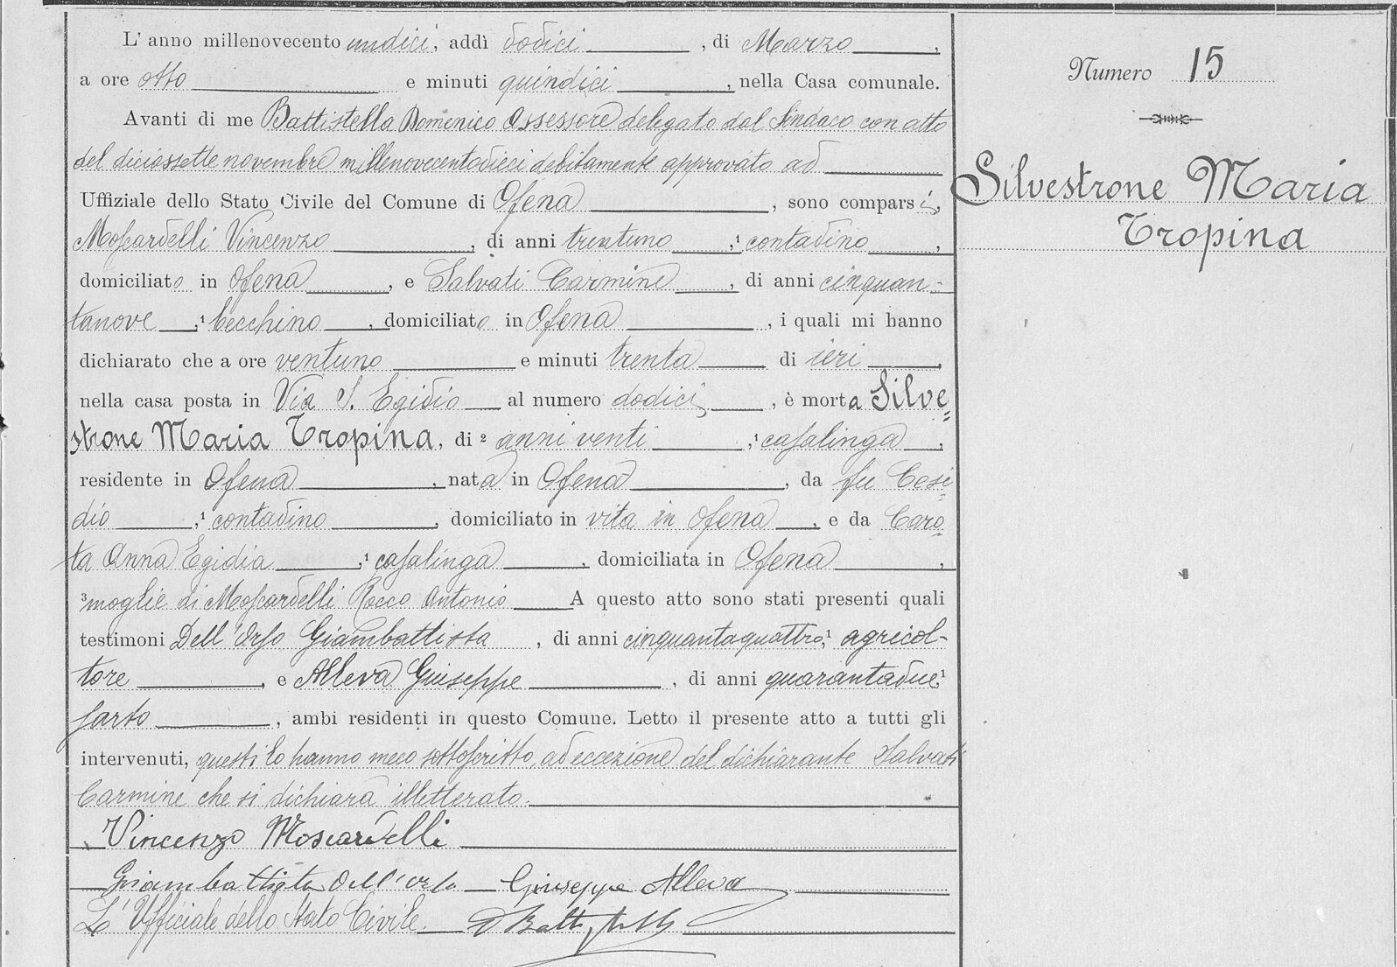 L' anno millenovecento undici, addì dodici, di Marzo,
a ore otto e minuti quindici, nella Casa comunale.
Avanti di me Battistella Domenico Assessore delegato dal Sindaco con atto
del diciassette novembre millenovecentodieci debitamente approvato ad
Uffiziale dello Stato Civile del Comune di Ofena, sono comparsi,
Moscardelli Vincenzo, di anni trentuno,¹ contadino,
domiciliato in Ofena, e Salvati Carmine, di anni cinquan-
tanove,¹ becchino, domiciliato in Ofena, i quali mi hanno
dichiarato che a ore ventuno e minuti trenta di ieri,
nella casa posta in Via S. Egidio al numero dodici, è morta Silve=
strone Maria Tropina, di ² anni venti,¹ casalinga,
residente in Ofena, nata in Ofena, da fu Cesi-
dio,¹ contadino, domiciliato in vita in Ofena, e da Caro-
ta Anna Egidia,¹ casalinga, domiciliata in Ofena,
³ moglie di Moscardelli Rocco Antonio A questo atto sono stati presenti quali
testimoni Dell'Orso Giambattista, di anni cinquantaquattro,¹ agricol-
tore, e Alleva Giuseppe, di anni quarantadue,¹
sarto, ambi residenti in questo Comune. Letto il presente atto a tutti gli
intervenuti, questi lo hanno meco sottoscritto, ad eccezione del dichiarante Salvati
Carmine che si dichiara illetterato.
Vincenzo Moscardelli
Giambattista Dell'Orso Giuseppe Alleva
L'Ufficiale dello Stato Civile. D Battistella
Numero 15
Silvestrone Maria
Tropina